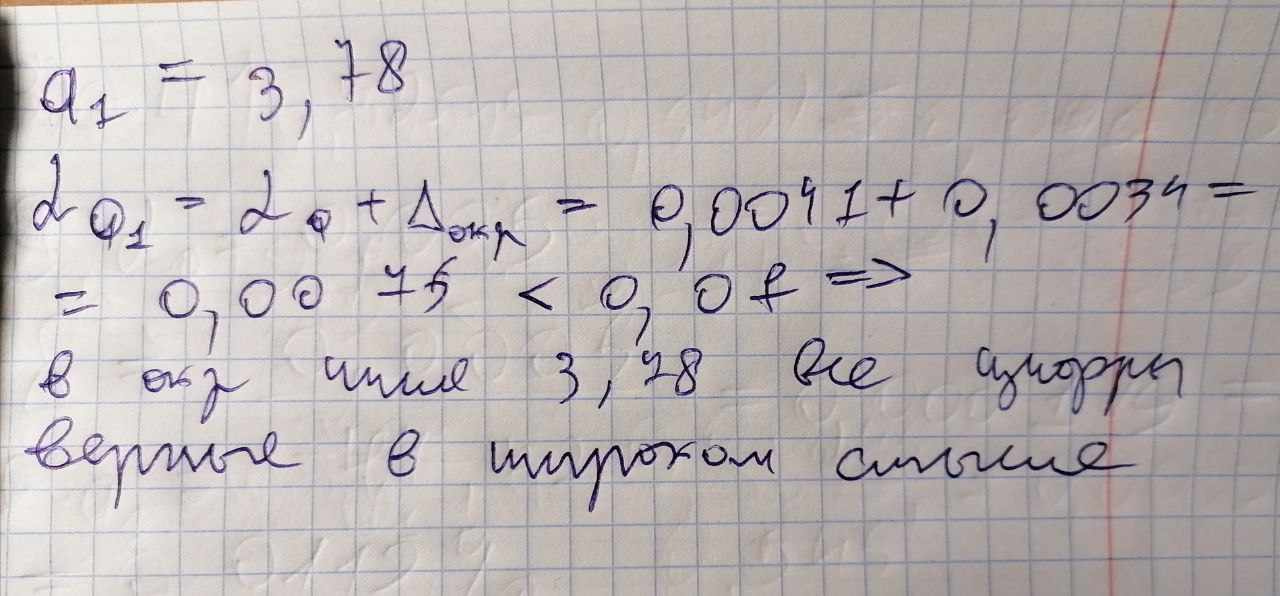 a₁ = 3,78
αa₁ = αa + Δокр = 0,0041 + 0,0034 =
= 0,0075 < 0,01 =>
в окр числе 3,78 все цифры
верные в широком смысле